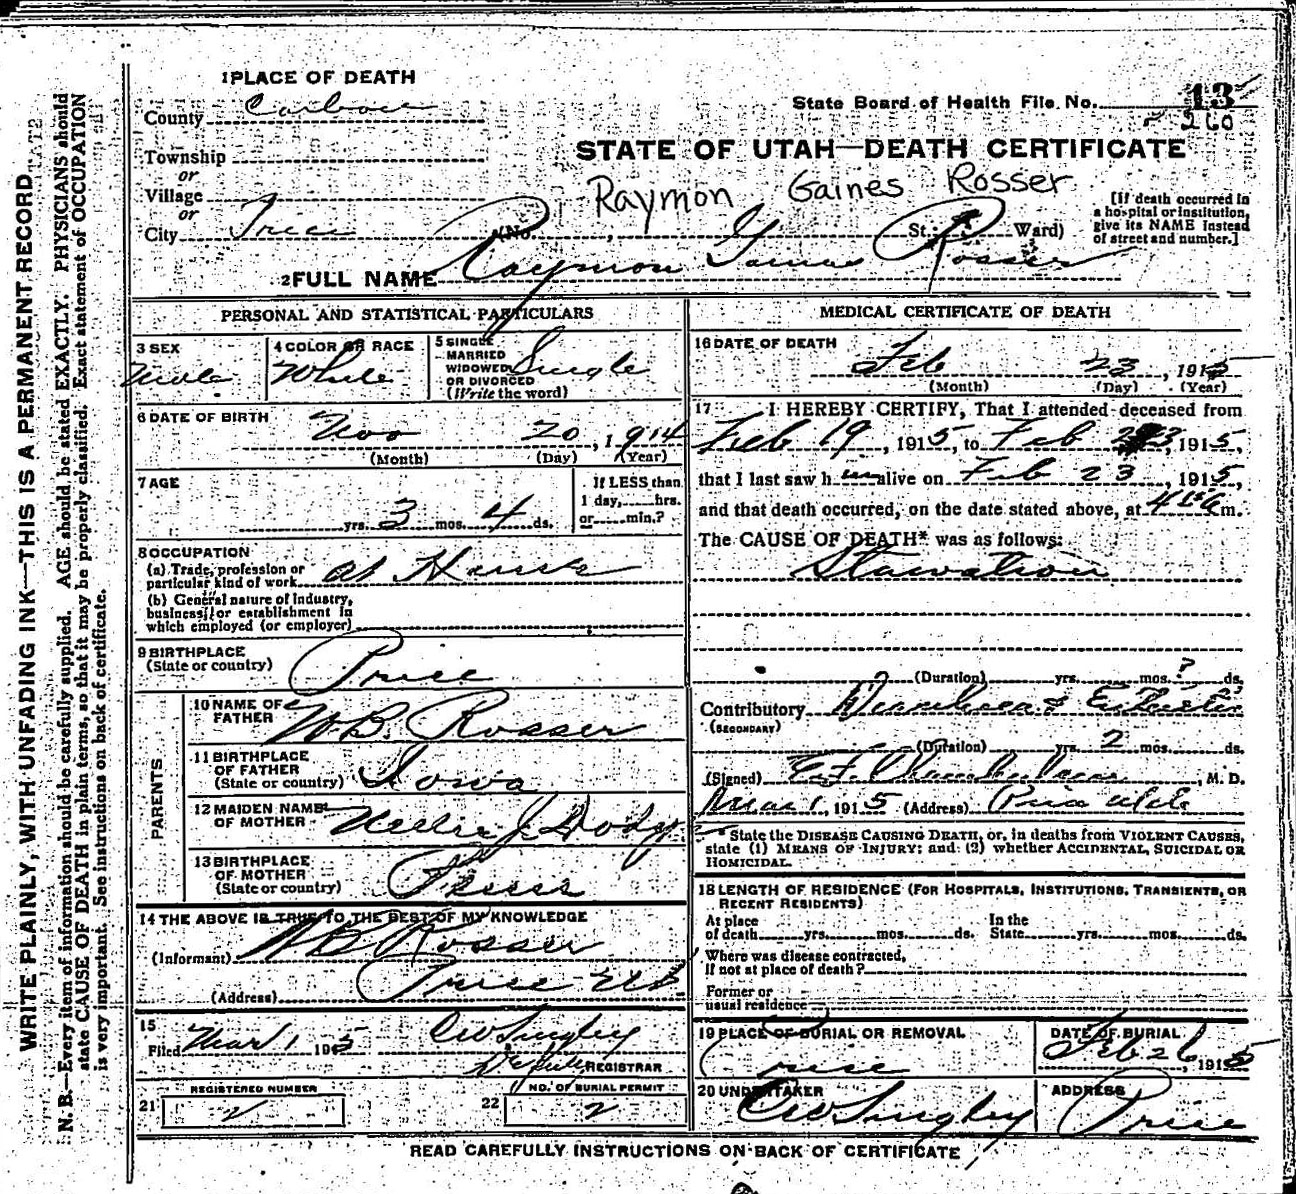 WRITE PLAINLY, WITH UNFADING INK—THIS IS A PERMANENT RECORD
N. B.—Every item of information should be carefully supplied. AGE should be stated EXACTLY. PHYSICIANS should
state CAUSE OF DEATH in plain terms, so that it may be properly classified. Exact statement of OCCUPATION
is very important. See instructions on back of certificate.
1 PLACE OF DEATH
County Carbon
State Board of Health File No. 13
260
Township
or
Village
or
City Price
STATE OF UTAH—DEATH CERTIFICATE
Raymon Gaines Rosser
(No. , St.; Ward)
[If death occurred in
a hospital or institution,
give its NAME instead
of street and number.]
2 FULL NAME Raymon Gaines Rosser
PERSONAL AND STATISTICAL PARTICULARS
3 SEX
Male
4 COLOR OR RACE
White
5 SINGLE
MARRIED
WIDOWED
OR DIVORCED
(Write the word)
Single
6 DATE OF BIRTH
Nov 20, 1914
(Month) (Day) (Year)
7 AGE
yrs. 3 mos. 4 ds.
If LESS than
1 day, hrs.
or min.?
8 OCCUPATION
(a) Trade, profession or
particular kind of work at House
(b) General nature of industry,
business, or establishment in
which employed (or employer)
9 BIRTHPLACE
(State or country) Price
PARENTS
10 NAME OF
FATHER W.B. Rosser
11 BIRTHPLACE
OF FATHER
(State or country) Iowa
12 MAIDEN NAME
OF MOTHER Nellie J.
13 BIRTHPLACE
OF MOTHER
(State or country)
14 THE ABOVE IS TRUE TO THE BEST OF MY KNOWLEDGE
(Informant) W B Rosser
(Address) Price
15
Filed Mar 1 1915 CW Singley
Deputy REGISTRAR
REGISTERED NUMBER
21 2
NO. OF BURIAL PERMIT
22 2
MEDICAL CERTIFICATE OF DEATH
16 DATE OF DEATH
Feb 23, 1915
(Month) (Day) (Year)
17 I HEREBY CERTIFY, That I attended deceased from
Feb 19, 1915, to Feb 23, 1915,
that I last saw him alive on Feb 23, 1915,
and that death occurred, on the date stated above, at m.
The CAUSE OF DEATH* was as follows:
Starvation
(Duration) yrs. mos. ? ds.
Contributory Diarrhoea &
(SECONDARY)
(Duration) yrs. 2 mos. ds.
(Signed) , M. D.
Mar 1, 1915 (Address) Price Utah
State the DISEASE CAUSING DEATH, or, in deaths from VIOLENT CAUSES,
state (1) MEANS OF INJURY; and (2) whether ACCIDENTAL, SUICIDAL OR
HOMICIDAL.
18 LENGTH OF RESIDENCE (FOR HOSPITALS, INSTITUTIONS, TRANSIENTS, OR
RECENT RESIDENTS)
At place
of death yrs. mos. ds.
In the
State yrs. mos. ds.
Where was disease contracted,
if not at place of death?
Former or
usual residence
19 PLACE OF BURIAL OR REMOVAL
Price
DATE OF BURIAL
Feb 26, 1915
20 UNDERTAKER
CW Singley
ADDRESS
Price
READ CAREFULLY INSTRUCTIONS ON BACK OF CERTIFICATE